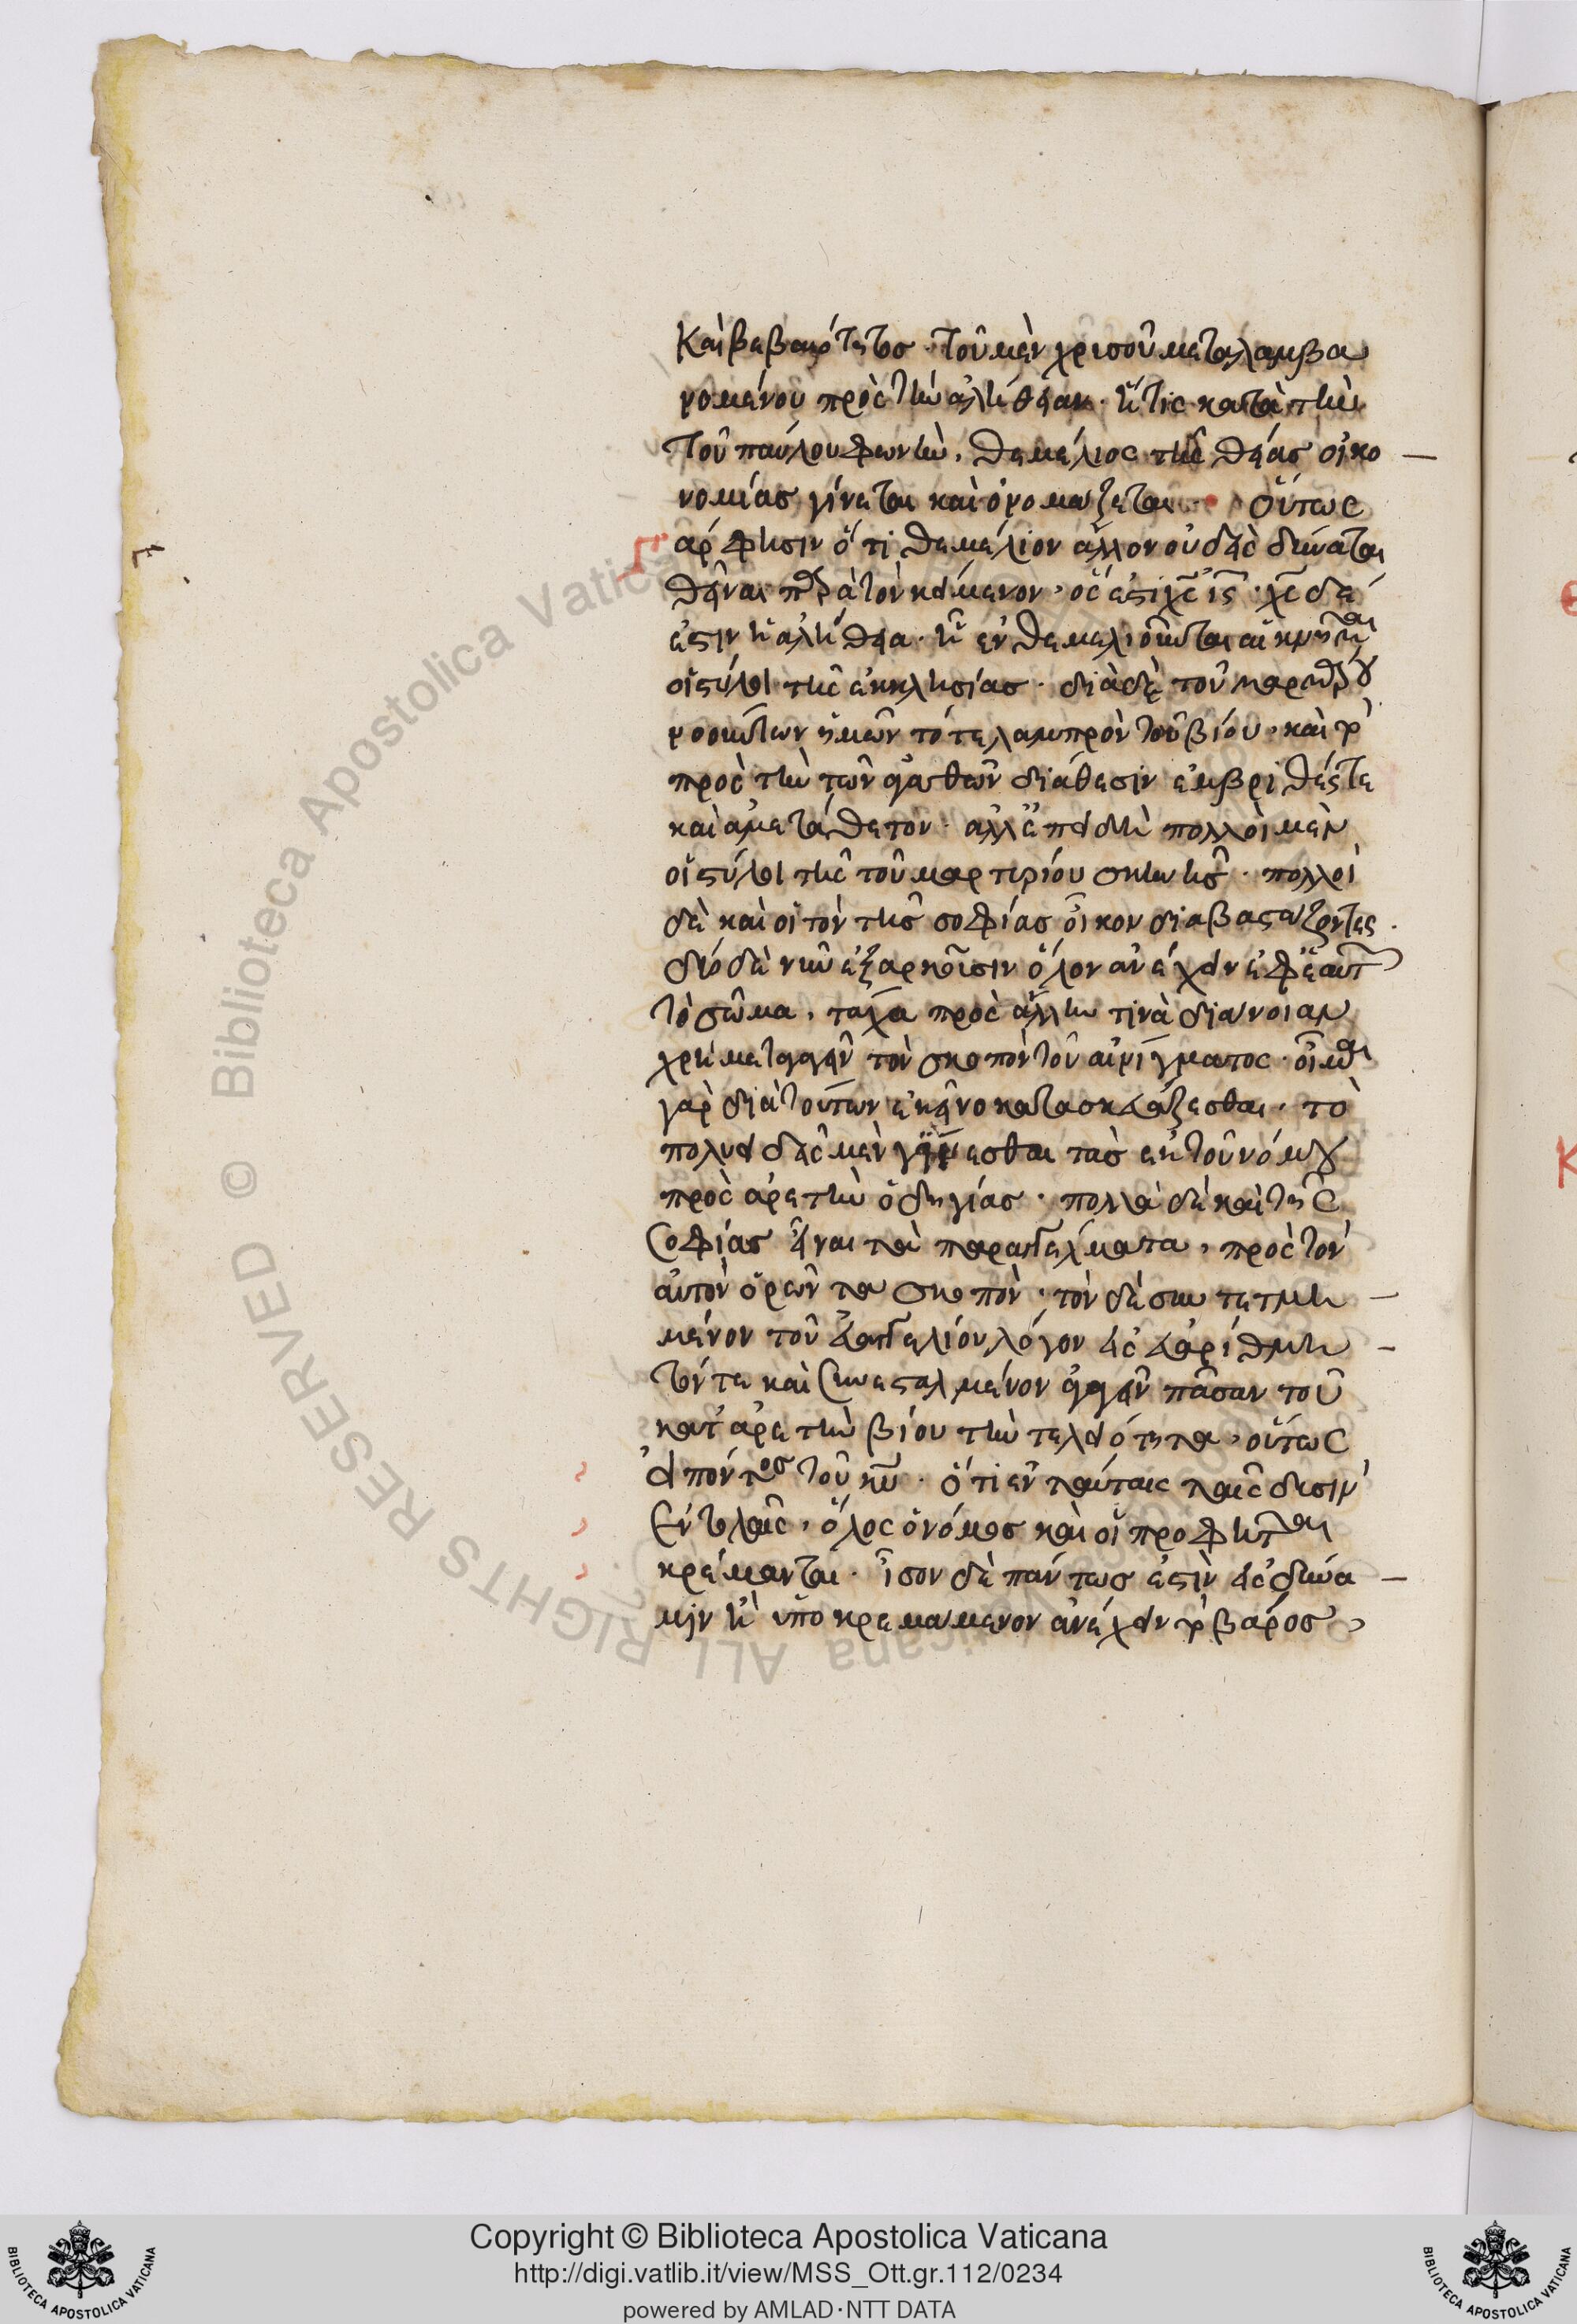 Καὶ βεβαιότητος · τοῦ μὲν χρυσοῦ μεταλαμβα
νομένου πρὸς τὴν ἀλήθειαν · ἥτις κατὰ τὴν
τοῦ παύλου φωνὴν, θεμέλιος τῆς θείας οἰκο
νομίας γίνεται καὶ ὀνομάζεται · οὕτως
γάρ φησιν ὅτι θεμέλιον ἄλλον οὐδεὶς δύναται
θεῖναι παρὰ τὸν κείμενον, ὅς ἐστι χς ις · χς δέ
ἐστιν ἡ ἀλήθεια · ᾗ ἐνθεμελιοῦνται αἱ κνῆμαι
οἱ στύλοι τῆς ἐκκλησίας · διὰ δὲ τοῦ μαρμάρου
νοούντων ἡμῶν τό τε λαμπρὸν τοῦ βίου, καὶ τὸ
πρὸς τὴν τῶν ἀγαθῶν διάθεσιν ἐμβριθές τε
καὶ ἀμετάθετον · ἀλλ' ἐπειδὴ πολλοὶ μὲν
οἱ στύλοι τῆς τοῦ μαρτυρίου σκηνῆς · πολλοὶ
δὲ καὶ οἱ τὸν τῆς σοφίας οἶκον διαβαστάζοντες ·
δύο δὲ νῦν ἐξαρκοῦσιν ὅλον ἀνέχειν ἐφ' ἑαυτῶν
τὸ σῶμα, τάχα πρὸς ἄλλην τινὰ διάνοιαν
χρὴ μεταγαγεῖν τὸν σκοπὸν τοῦ αἰνίγματος · οἶμαι
γὰρ διὰ τούτων ἐκεῖνο κατασκευάζεσθαι, τὸ
πολυειδεῖς μὲν γίνεσθαι τὰς ἐκ τοῦ νόμου
πρὸς ἀρετὴν ὁδηγίας · πολλὰ δὲ καὶ τῆς
Σοφίας εἶναι τὰ παραγγέλματα, πρὸς τὸν
αὐτὸν ὁρῶντα σκοπὸν · τὸν δὲ συντετμη
μένον τοῦ εὐαγγελίου λόγον εἰς εὐαρίθμη
τόν τε καὶ Συνεσταλμένον ἀγαγεῖν πᾶσαν τοῦ
κατ' ἀρετὴν βίου τὴν τελειότητα, οὕτως
εἰπόντος τοῦ κυ · ὅτι ἐν ταύταις ταῖς δυσὶν
Ἐντολαῖς, ὅλος ὁ νόμος καὶ οἱ προφῆται
κρέμανται · ἴσον δὲ πάντως ἐστὶν εἰς δύνα
μιν ἢ ὑποκρεμάμενον ἀνέχειν τὸ βάρος,
Biblioteca Apostolica Vaticana
© ALL RIGHTS RESERVED
Copyright © Biblioteca Apostolica Vaticana
http://digi.vatlib.it/view/MSS_Ott.gr.112/0234
powered by AMLAD·NTT DATA
BIBLIOTECA APOSTOLICA VATICANA
BIBLIOTECA APOSTOLICA VATICANA